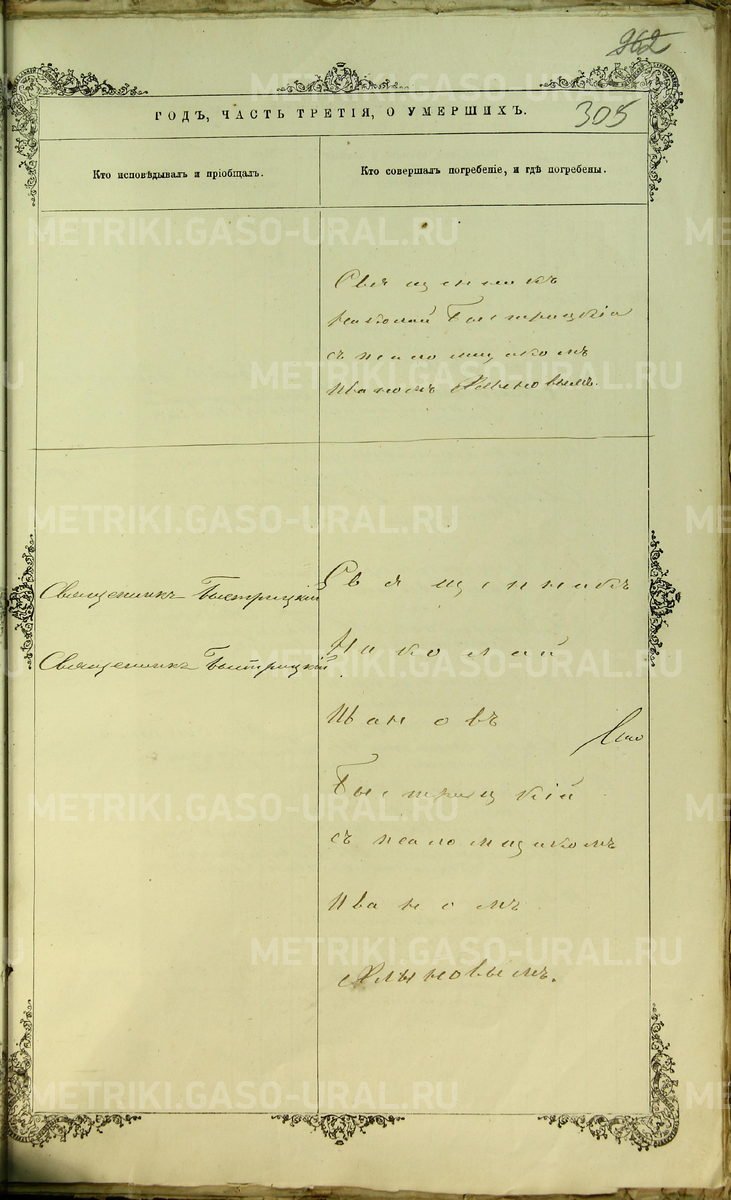 962
305
ГОДЪ, ЧАСТЬ ТРЕТІЯ, О УМЕРШИХЪ.
Кто исповѣдывалъ и пріобщалъ.
Кто совершалъ погребеніе, и гдѣ погребены.
Священникъ
Николай Быстрицкій
съ псаломщикомъ
Иваномъ Хлыновымъ.
Священникъ Быстрицкій
Священникъ Быстрицкій
Священникъ
Николай
Быстрицкій
съ псаломщикомъ
Иваномъ
Хлыновымъ.
METRIKI.GASO-URAL.RU